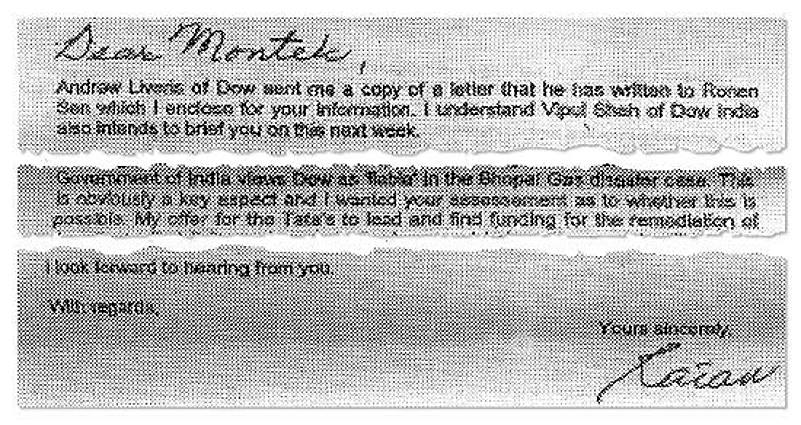 Dear Montek,
Andrew Liveris of Dow sent me a copy of a letter that he has written to Ronen
Sen which I enclose for your information. I understand Vipul Shah of Dow India
also intends to brief you on this next week.
Government of India views Dow as 'liable' in the Bhopal Gas disaster case. This
is obviously a key aspect and I wanted your assessement as to whether this is
possible. My offer for the Tata's to lead and find funding for the remediation of
I look forward to hearing from you.
With regards,
Yours sincerely,
Ratan